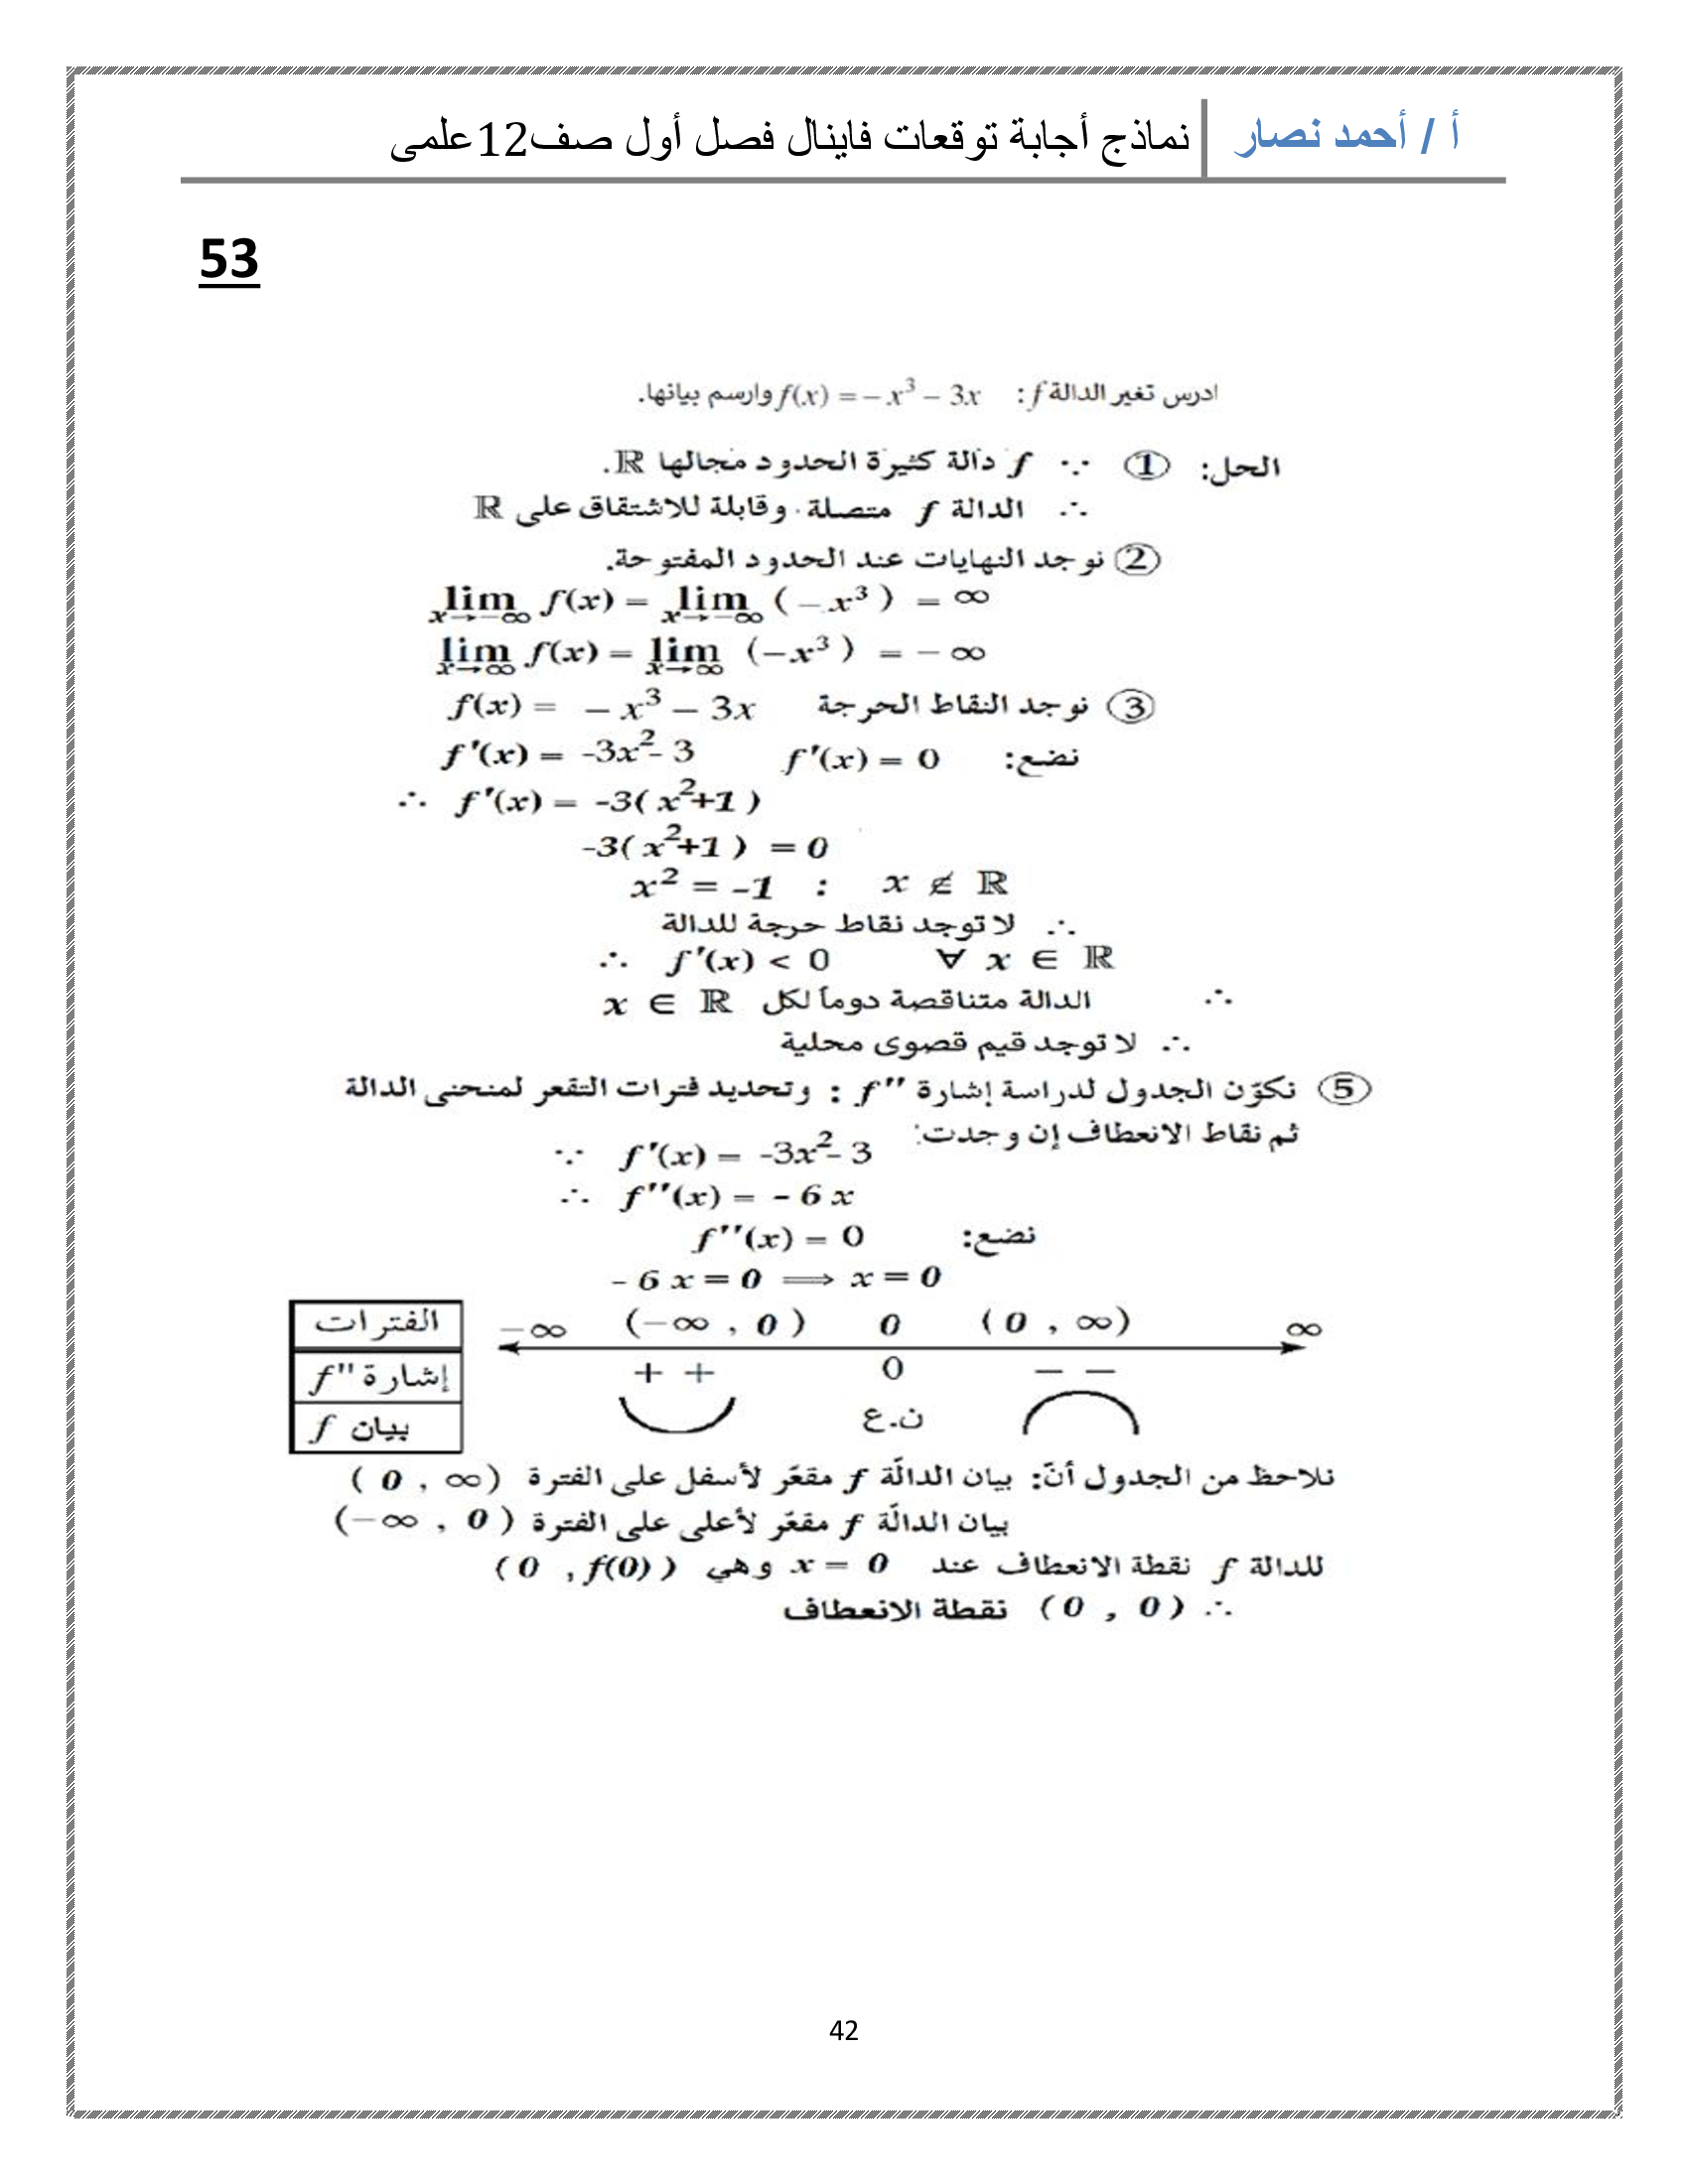 أ / أحمد نصار
نماذج أجابة توقعات فاينال فصل أول صف12علمى
53
ادرس تغير الدالة f : f(x) = − x³ − 3x وارسم بيانها.
الحل: ① ∵ f دالة كثيرة الحدود مجالها ℝ.
∴ الدالة f متصلة وقابلة للاشتقاق على ℝ
② نوجد النهايات عند الحدود المفتوحة.
lim x→−∞ f(x) = lim x→−∞ (−x³) = ∞
lim x→∞ f(x) = lim x→∞ (−x³) = − ∞
③ نوجد النقاط الحرجة f(x) = − x³ − 3x
نضع: f′(x) = 0 f′(x) = -3x²- 3
∴ f′(x) = -3( x²+1 )
-3( x²+1 ) = 0
x² = -1 : x ∉ ℝ
∴ لا توجد نقاط حرجة للدالة
∴ f′(x) < 0 ∀ x ∈ ℝ
∴ الدالة متناقصة دوماً لكل x ∈ ℝ
∴ لا توجد قيم قصوى محلية
⑤ نكوّن الجدول لدراسة إشارة f″ : وتحديد فترات التقعر لمنحنى الدالة
ثم نقاط الانعطاف إن وجدت:
∵ f′(x) = -3x²- 3
∴ f″(x) = - 6 x
نضع: f″(x) = 0
- 6 x = 0 ⟹ x = 0
الفترات −∞ (−∞ , 0 ) 0 ( 0 , ∞) ∞
إشارة f″ + + 0 − −
بيان f ن.ع
نلاحظ من الجدول أنّ: بيان الدالّة f مقعّر لأسفل على الفترة ( 0 , ∞)
بيان الدالّة f مقعّر لأعلى على الفترة (−∞ , 0 )
للدالة f نقطة الانعطاف عند x = 0 وهي ( 0 , f(0) )
∴ ( 0 , 0 ) نقطة الانعطاف
42